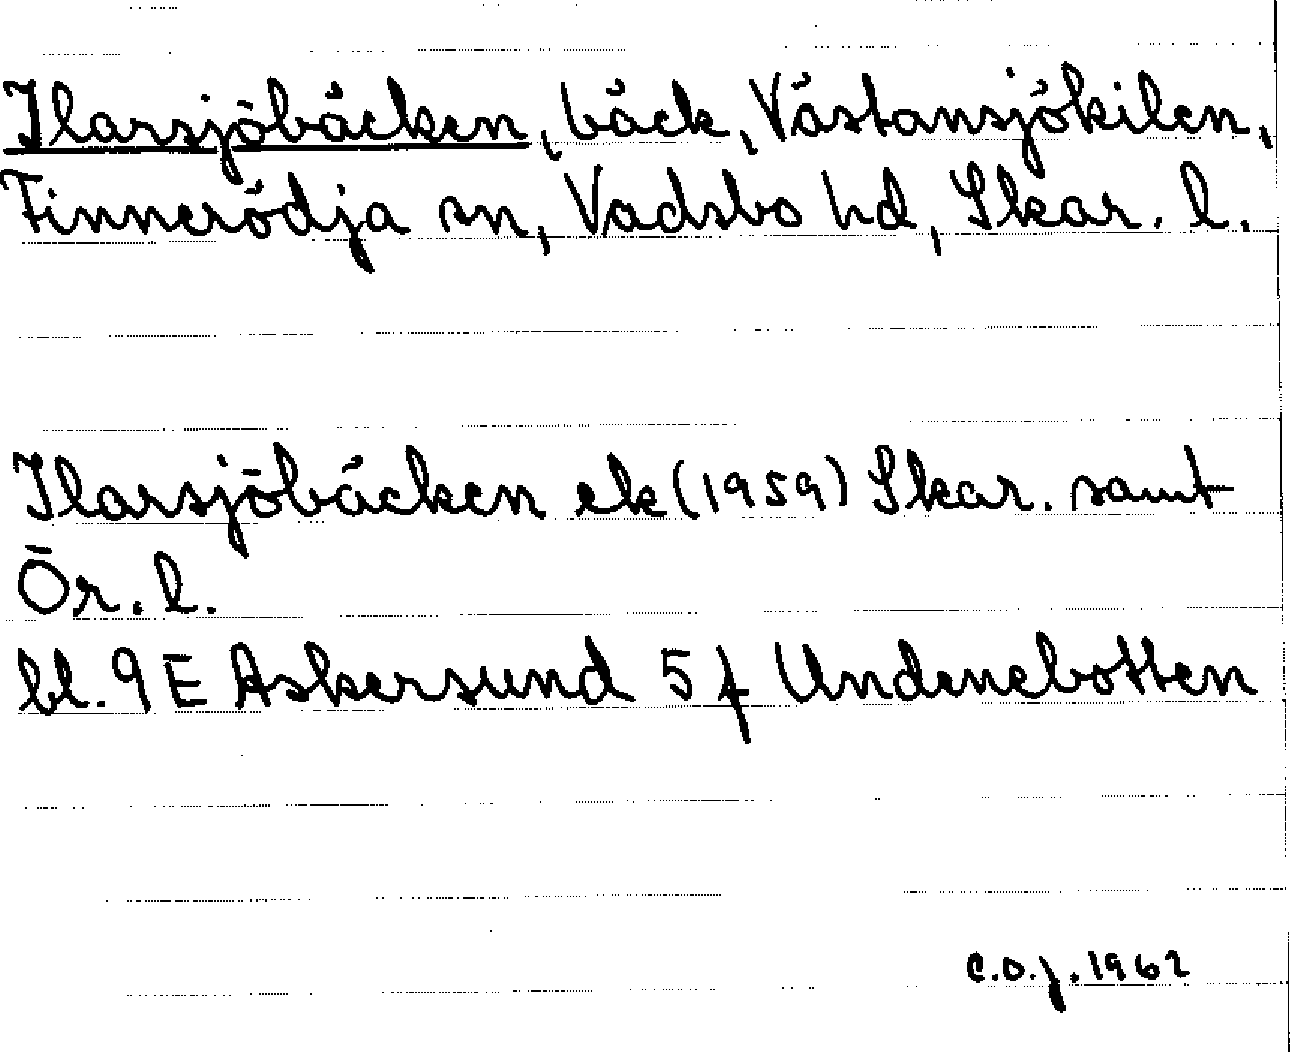 Ilarsjöbäcken, bäck, Västansjökilen,
Finnerödja sn, Vadsbo hd, Skar. l.
Ilarsjöbäcken ek (1959) Skar. samt
Ör. l.
bl. 9 E Askersund 5 f Undenebotten
C.O.J. 1962